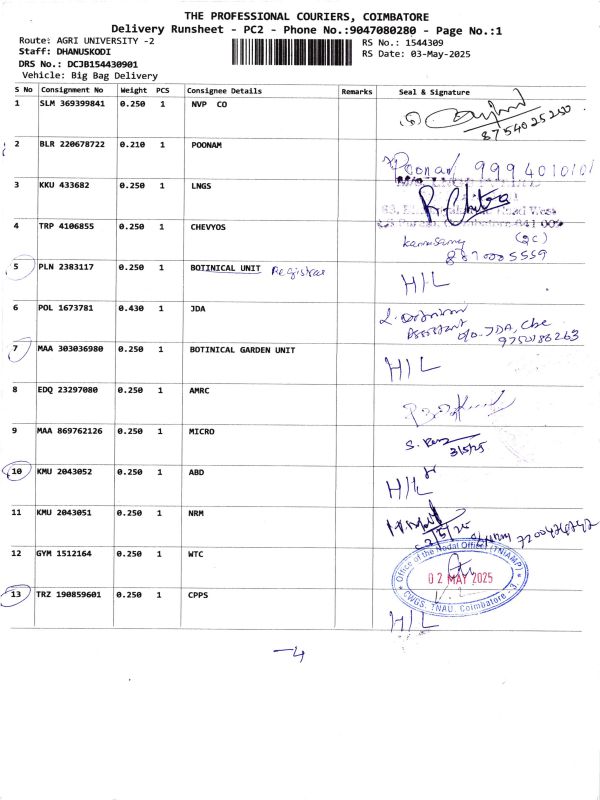 THE PROFESSIONAL COURIERS, COIMBATORE
Delivery Runsheet - PC2 - Phone No.:9047080280 - Page No.:1
Route: AGRI UNIVERSITY -2
RS No.: 1544309
Staff: DHANUSKODI
RS Date: 03-May-2025
DRS No.: DCJB154430901
Vehicle: Big Bag Delivery
S No Consignment No Weight PCS Consignee Details Remarks Seal & Signature
1 SLM 369399841 0.250 1 NVP CO
8754025250
2 BLR 220678722 0.210 1 POONAM
Poonam 9994010101
3 KKU 433682 0.250 1 LNGS
R. Chitra
4 TRP 4106855 0.250 1 CHEVYOS
8870005559
5 PLN 2383117 0.250 1 BOTINICAL UNIT Registrar H/L
6 POL 1673781 0.430 1 JDA
Assistant o/o. JDA, Cbe
9750186263
7 MAA 303036980 0.250 1 BOTINICAL GARDEN UNIT H/L
8 EDQ 23297080 0.250 1 AMRC
9 MAA 869762126 0.250 1 MICRO
3/5/25
10 KMU 2043052 0.250 1 ABD H/L
11 KMU 2043051 0.250 1 NRM
2/5/25
12 GYM 1512164 0.250 1 WTC
Office of the Nodal Officer (TNIAMP)
02 MAY 2025
CWGS, TNAU, Coimbatore - 3.
13 TRZ 190859601 0.250 1 CPPS H/L
-4